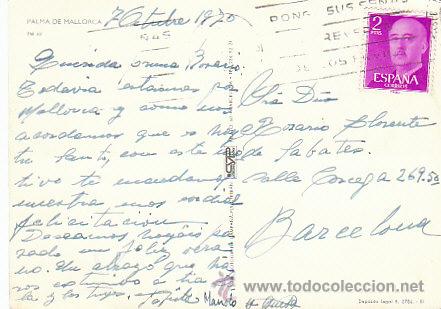 PALMA DE MALLORCA
7 Octubre 1970
PM 40
PONG SUS SEÑAS
2
PTAS
ESPAÑA
CORREOS
Querida prima Rosario
Todavia estamos por
Mallorca y como nos
acordamos que es hoy
tu Santo, con este mo
tivo te mandamos
nuestra mas cordial
felicitación.
Deseamos hayais pa
sado un feliz vera
no. Un abrazo
y los hijos. Manolo
Sra Dña
Rosario Llorente
de Sabater
calle Corcega 269. 5º
Barcelona
Depósito Legal B.
www.todocoleccion.net